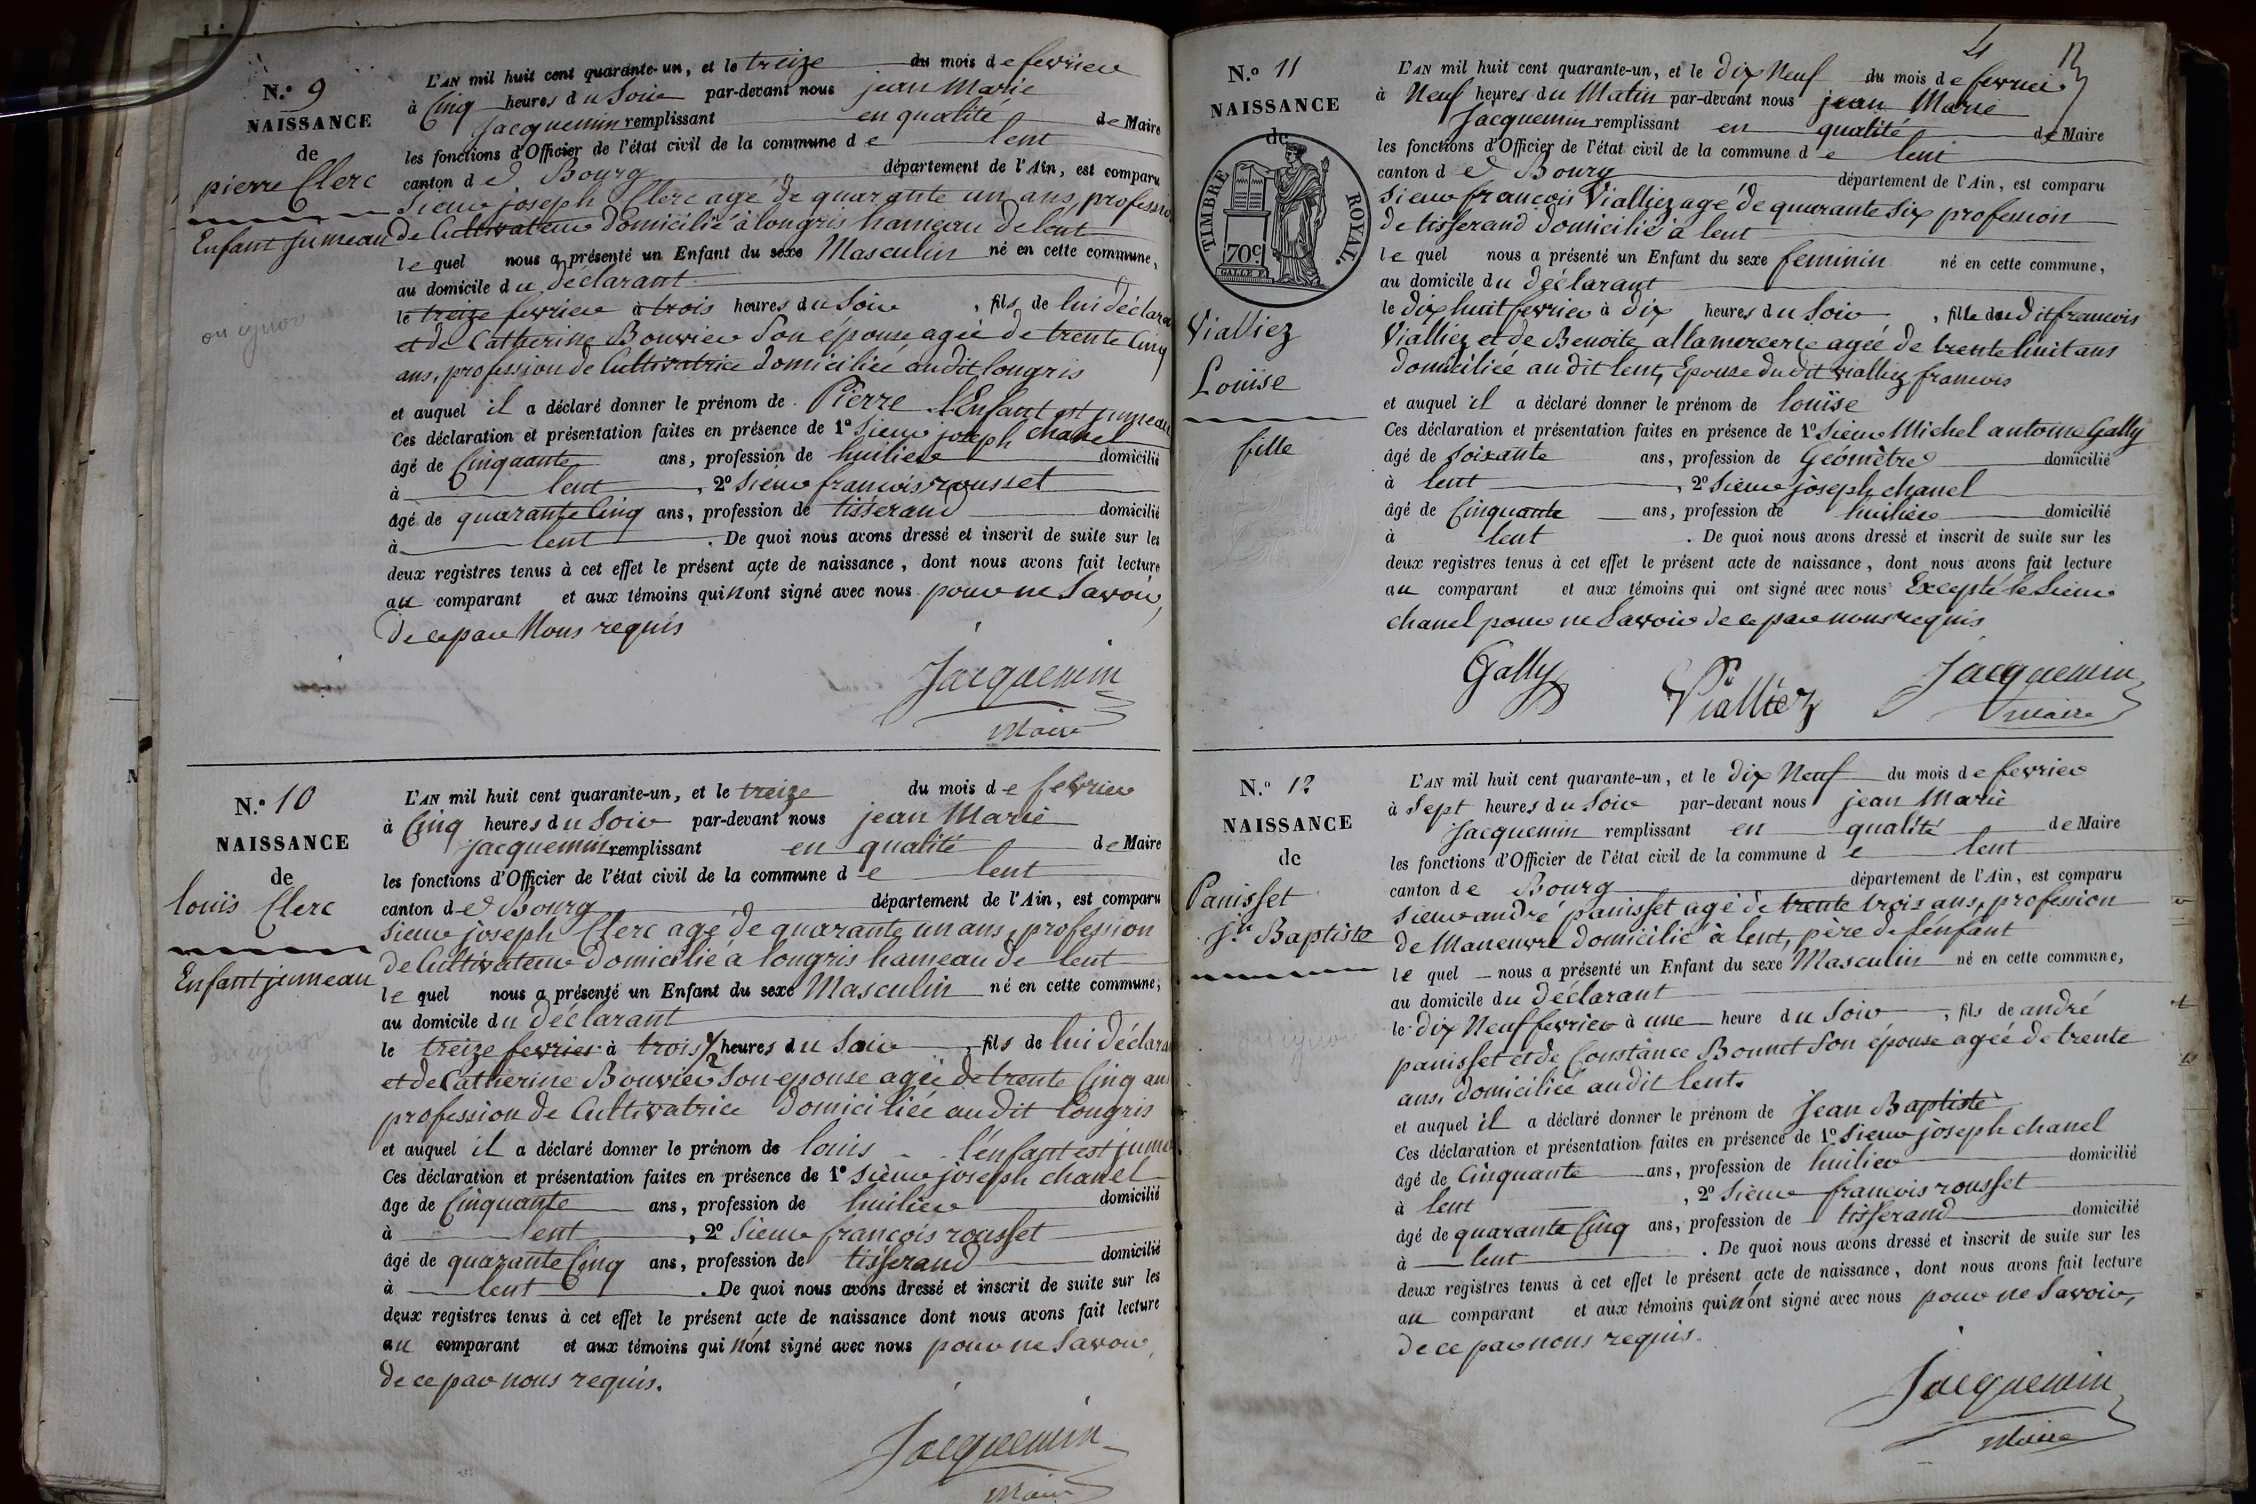 N.º 9
NAISSANCE
de
pierre Clerc
Enfant jumeau
L'AN mil huit cent quarante-un, et le treize du mois de fevrier
à Cinq heures du Soir par-devant nous jean Marie
Jacquemin remplissant en qualité de Maire
les fonctions d'Officier de l'état civil de la commune de lent
canton de Bourg département de l'Ain, est comparu
Sieur joseph Clerc agé de quarante un ans, professio
de Cultivateur domicilié à longris hameau de lent
lequel nous a présenté un Enfant du sexe Masculin né en cette commune,
au domicile du déclarant
le treize fevrier à trois heures du Soir, fils de lui déclara
et de Catherine Bouvier Son épouse agée de trente Cinq
ans, profession de Cultivatrice domiciliée audit longris
et auquel il a déclaré donner le prénom de Pierre l'Enfant est jumeau
Ces déclaration et présentation faites en présence de 1º Sieur joseph chanel
âgé de Cinquante ans, profession de huilier domicilié
à lent, 2º Sieur francois rousset
âgé de quarante Cinq ans, profession de tisserand domicilié
à lent. De quoi nous avons dressé et inscrit de suite sur les
deux registres tenus à cet effet le présent acte de naissance, dont nous avons fait lecture
au comparant et aux témoins qui n'ont signé avec nous pour ne Savoir,
de ce par Nous requis
Jacquemin
Maire
N.º 10
NAISSANCE
de
louis Clerc
Enfant jumeau
L'AN mil huit cent quarante-un, et le treize du mois de fevrier
à Cinq heures du Soir par-devant nous jean Marie
jacquemin remplissant en qualité de Maire
les fonctions d'Officier de l'état civil de la commune de lent
canton de Bourg département de l'Ain, est comparu
Sieur joseph Clerc agé de quarante un ans, profession
de Cultivateur domicilié à longris hameau de lent
lequel nous a présenté un Enfant du sexe Masculin né en cette commune,
au domicile du déclarant
le treize fevrier à trois ½ heures du Soir, fils de lui déclara
et de Catherine Bouvier Son epouse agée de trente Cinq ans
profession de Cultivatrice domiciliée audit longris
et auquel il a déclaré donner le prénom de louis l'enfant est jume
Ces déclaration et présentation faites en présence de 1º Sieur joseph chanel
âgé de Cinquante ans, profession de huilier domicilié
à lent, 2º Sieur francois rousset
âgé de quarante Cinq ans, profession de tisserand domicilié
à lent. De quoi nous avons dressé et inscrit de suite sur les
deux registres tenus à cet effet le présent acte de naissance dont nous avons fait lecture
au comparant et aux témoins qui n'ont signé avec nous pour ne Savoir,
de ce par nous requis.
Jacquemin
Maire
4 12
N.º 11
NAISSANCE
de
TIMBRE ROYAL.
70c
Vialliez
Louïse
fille
L'AN mil huit cent quarante-un, et le dix Neuf du mois de fevrier
à Neuf heures du Matin par-devant nous jean Marie
Jacquemin remplissant en qualité de Maire
les fonctions d'Officier de l'état civil de la commune de lent
canton de Bourg département de l'Ain, est comparu
Sieur francois Vialliez agé de quarante Six profession
de tisserand domicilié à lent
lequel nous a présenté un Enfant du sexe feminin né en cette commune,
au domicile du déclarant
le dix huit fevrier à dix heures du Soir, fille du dit francois
Vialliez et de Benoite allamercerie agée de trente huit ans
domiciliée audit lent, Epouse dudit vialliez francois
et auquel il a déclaré donner le prénom de louise
Ces déclaration et présentation faites en présence de 1º Sieur Michel antoine Gally
âgé de Soixante ans, profession de Géomètre domicilié
à lent, 2º Sieur joseph chanel
âgé de Cinquante ans, profession de huilier domicilié
à lent. De quoi nous avons dressé et inscrit de suite sur les
deux registres tenus à cet effet le présent acte de naissance, dont nous avons fait lecture
au comparant et aux témoins qui ont signé avec nous Excepté le Sieur
chanel pour ne Savoir de ce par nous requis
Gally Vialliez Jacquemin
maire
N.º 12
NAISSANCE
de
Panisset
Jn Baptiste
L'AN mil huit cent quarante-un, et le dix Neuf du mois de fevrier
à Sept heures du Soir par-devant nous jean Marie
Jacquemin remplissant en qualité de Maire
les fonctions d'Officier de l'état civil de la commune de lent
canton de Bourg département de l'Ain, est comparu
Sieur andré panisset agé de trente trois ans, profession
de Maneuvre domicilié à lent, père de l'énfant
lequel nous a présenté un Enfant du sexe Masculin né en cette commune,
au domicile du déclarant
le dix Neuf fevrier à une heure du Soir, fils de andré
panisset et de Constance Bonnet Son épouse agée de trente
ans, domiciliée audit lent.
et auquel il a déclaré donner le prénom de Jean Baptiste
Ces déclaration et présentation faites en présence de 1º Sieur joseph chanel
âgé de Cinquante ans, profession de huilier domicilié
à lent, 2º Sieur francois rousset
âgé de quarante Cinq ans, profession de tisserand domicilié
à lent. De quoi nous avons dressé et inscrit de suite sur les
deux registres tenus à cet effet le présent acte de naissance, dont nous avons fait lecture
au comparant et aux témoins qui n'ont signé avec nous pour ne Savoir,
de ce par nous requis.
Jacquemin
Maire